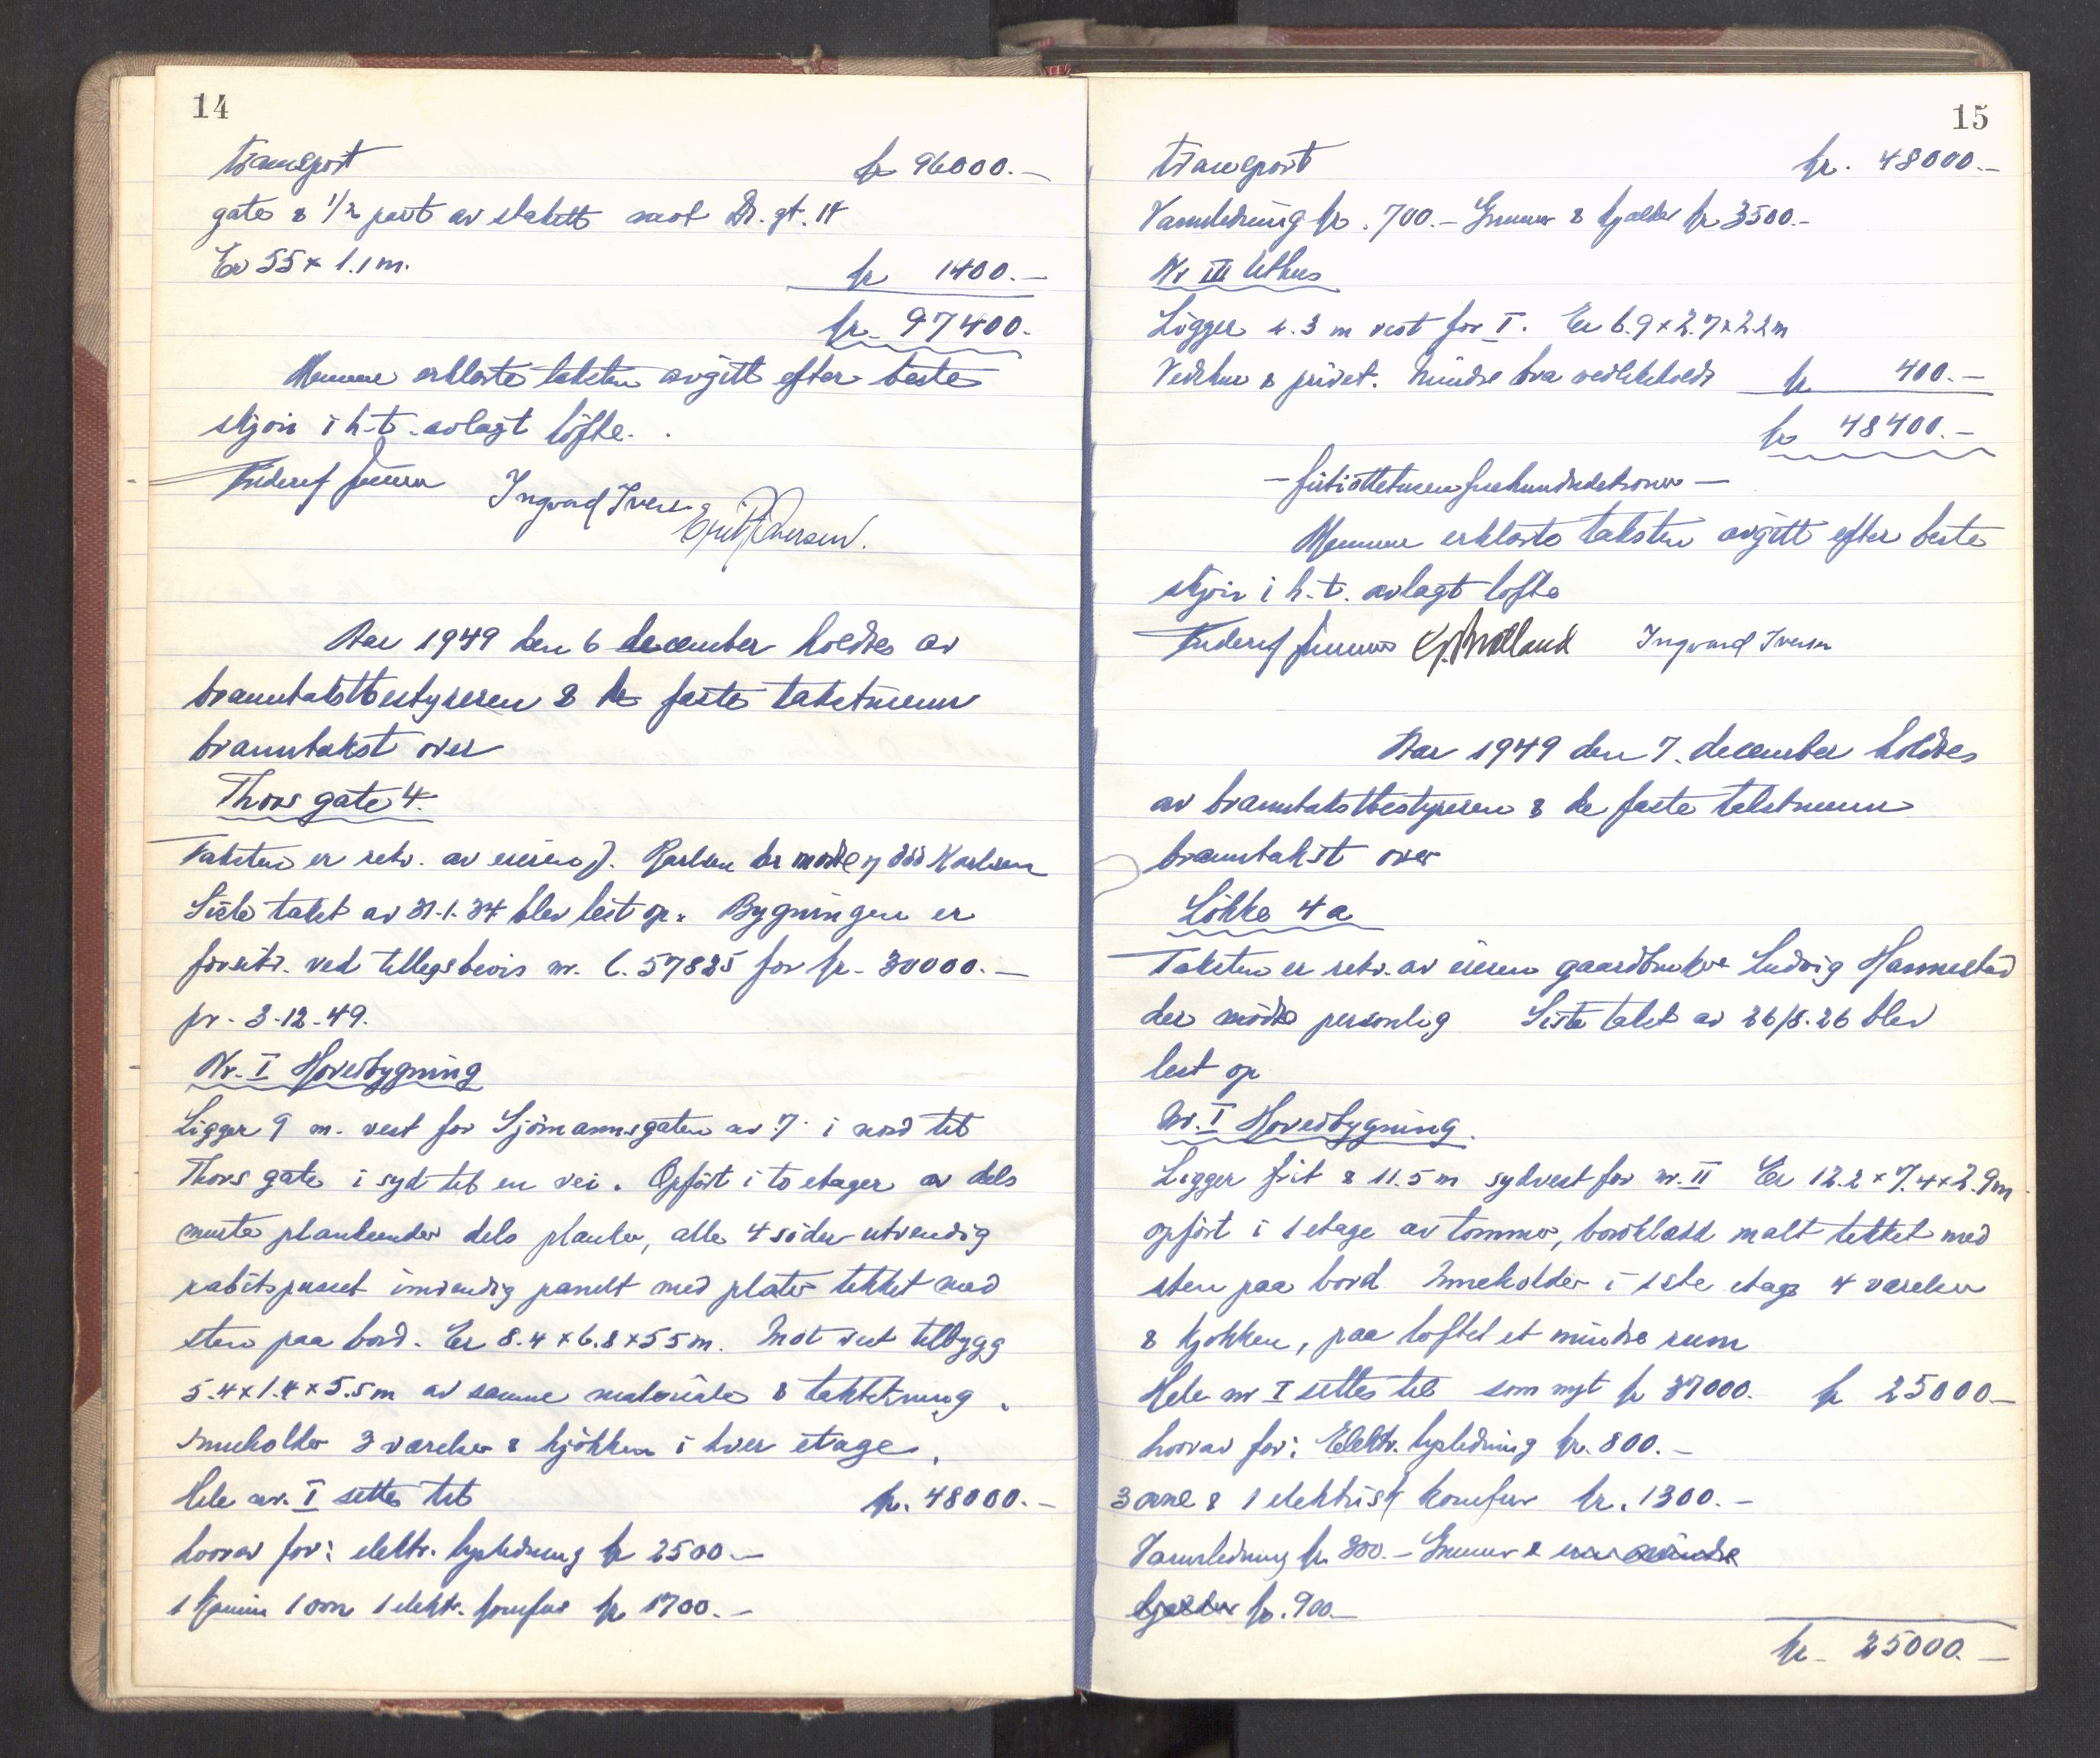 14
transport kr 96000.-
gate & 1/2 part av stakitt mot Dr. gt. 14
Er 55 x 1.1 m. kr 1400.-
kr. 97400.
Mennene erklærte taksten avgitt efter beste
skjön i h-t. avlagt löfte.
Ingvard Iversen
Aar 1949 den 6 december holdtes av
branntakstbestyreren & de faste takstmenn
branntakst over
Thors gate 4.
Taksten er rekv. av eieren J. Karlsen der mødte v/ Odd Karlsen
Siste takst av 31-1-34 blev lest op. Bygningen er
forsikr. ved tillegsbevis nr. C. 57835 for kr. 30000.-
pr. 3-12-49.
Nr. I Hovedbygning
Ligger 9 m. vest for Sjömannsgaten nr 7. i nord til
Thors gate i syd til en vei. Opfört i to etager av dels
plankeender dels planker, alle 4 sider utvendig
rabitspusset innvendig panelt med plater tekket med
sten paa bord. Er 8.4 x 6.8 x 5.5 m. Mot vest tilbygg
5.4 x 1.4 x 5.5 m av samme materiale & taktekning.
Inneholder 3 værelser & kjökken i hver etage.
Hele nr. I settes til kr. 48000.-
hvorav for: elektr. lysledning kr 2500.-
1 kamin 1 ovn 1 elektr. komfur kr 1700.-
15
transport kr. 48000.-
Vannledning kr. 700.- Grunnmur & kjælder kr 3500.-
Nr III Uthus
Ligger 4.3 m vest for I. Er 6.9 x 2.7 x 2.2 m
Vedskur & privet. Mindre bra vedlikeholdt kr 400.-
kr 48400.-
- førtiåttetusenfirehundredekroner -
Mennene erklærte taksten avgitt efter beste
skjön i h.t. avlagt löfte
Ingvard Iversen
Aar 1949 den 7. december holdtes
av branntakstbestyreren & de faste takstmenn
branntakst over
Lökke 4a
Taksten er rekv. av eieren gaardbruker Ludvig Hannestad
der mödte personlig Siste takst av 26/8.26 blev
lest op
Nr. I Hovedbygning.
Ligger frit & 11.5 m sydvest for nr. II Er 12.2 x 7.4 x 2.9 m
opfört i 1 etage av tömmer, bordklædd malt tekket med
sten paa bord Inneholder i 1ste etage 4 værelser
& kjökken, paa loftet et mindre rum
Hele nr I settes til som nytt kr 37000. kr 25000.-
hvorav for: Elektr. lysledning kr. 800.-
3 ovne & 1 elektrisk komfur kr. 1300.-
Vannledning kr. 300.- Grunnmur & en mindre
kjælder kr. 900.-
kr. 25000.-